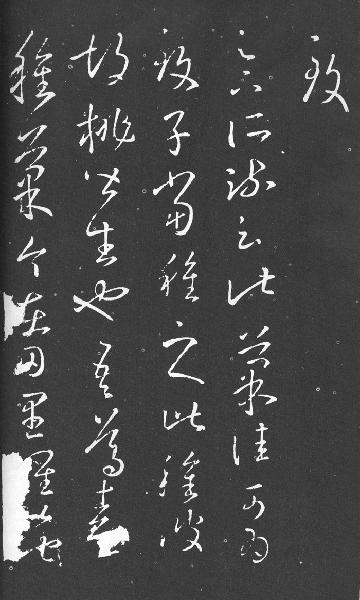 致
足下所疏云此菓佳可為
致子當種之此種彼
胡桃皆生也吾篤喜
種菓今在田里唯以